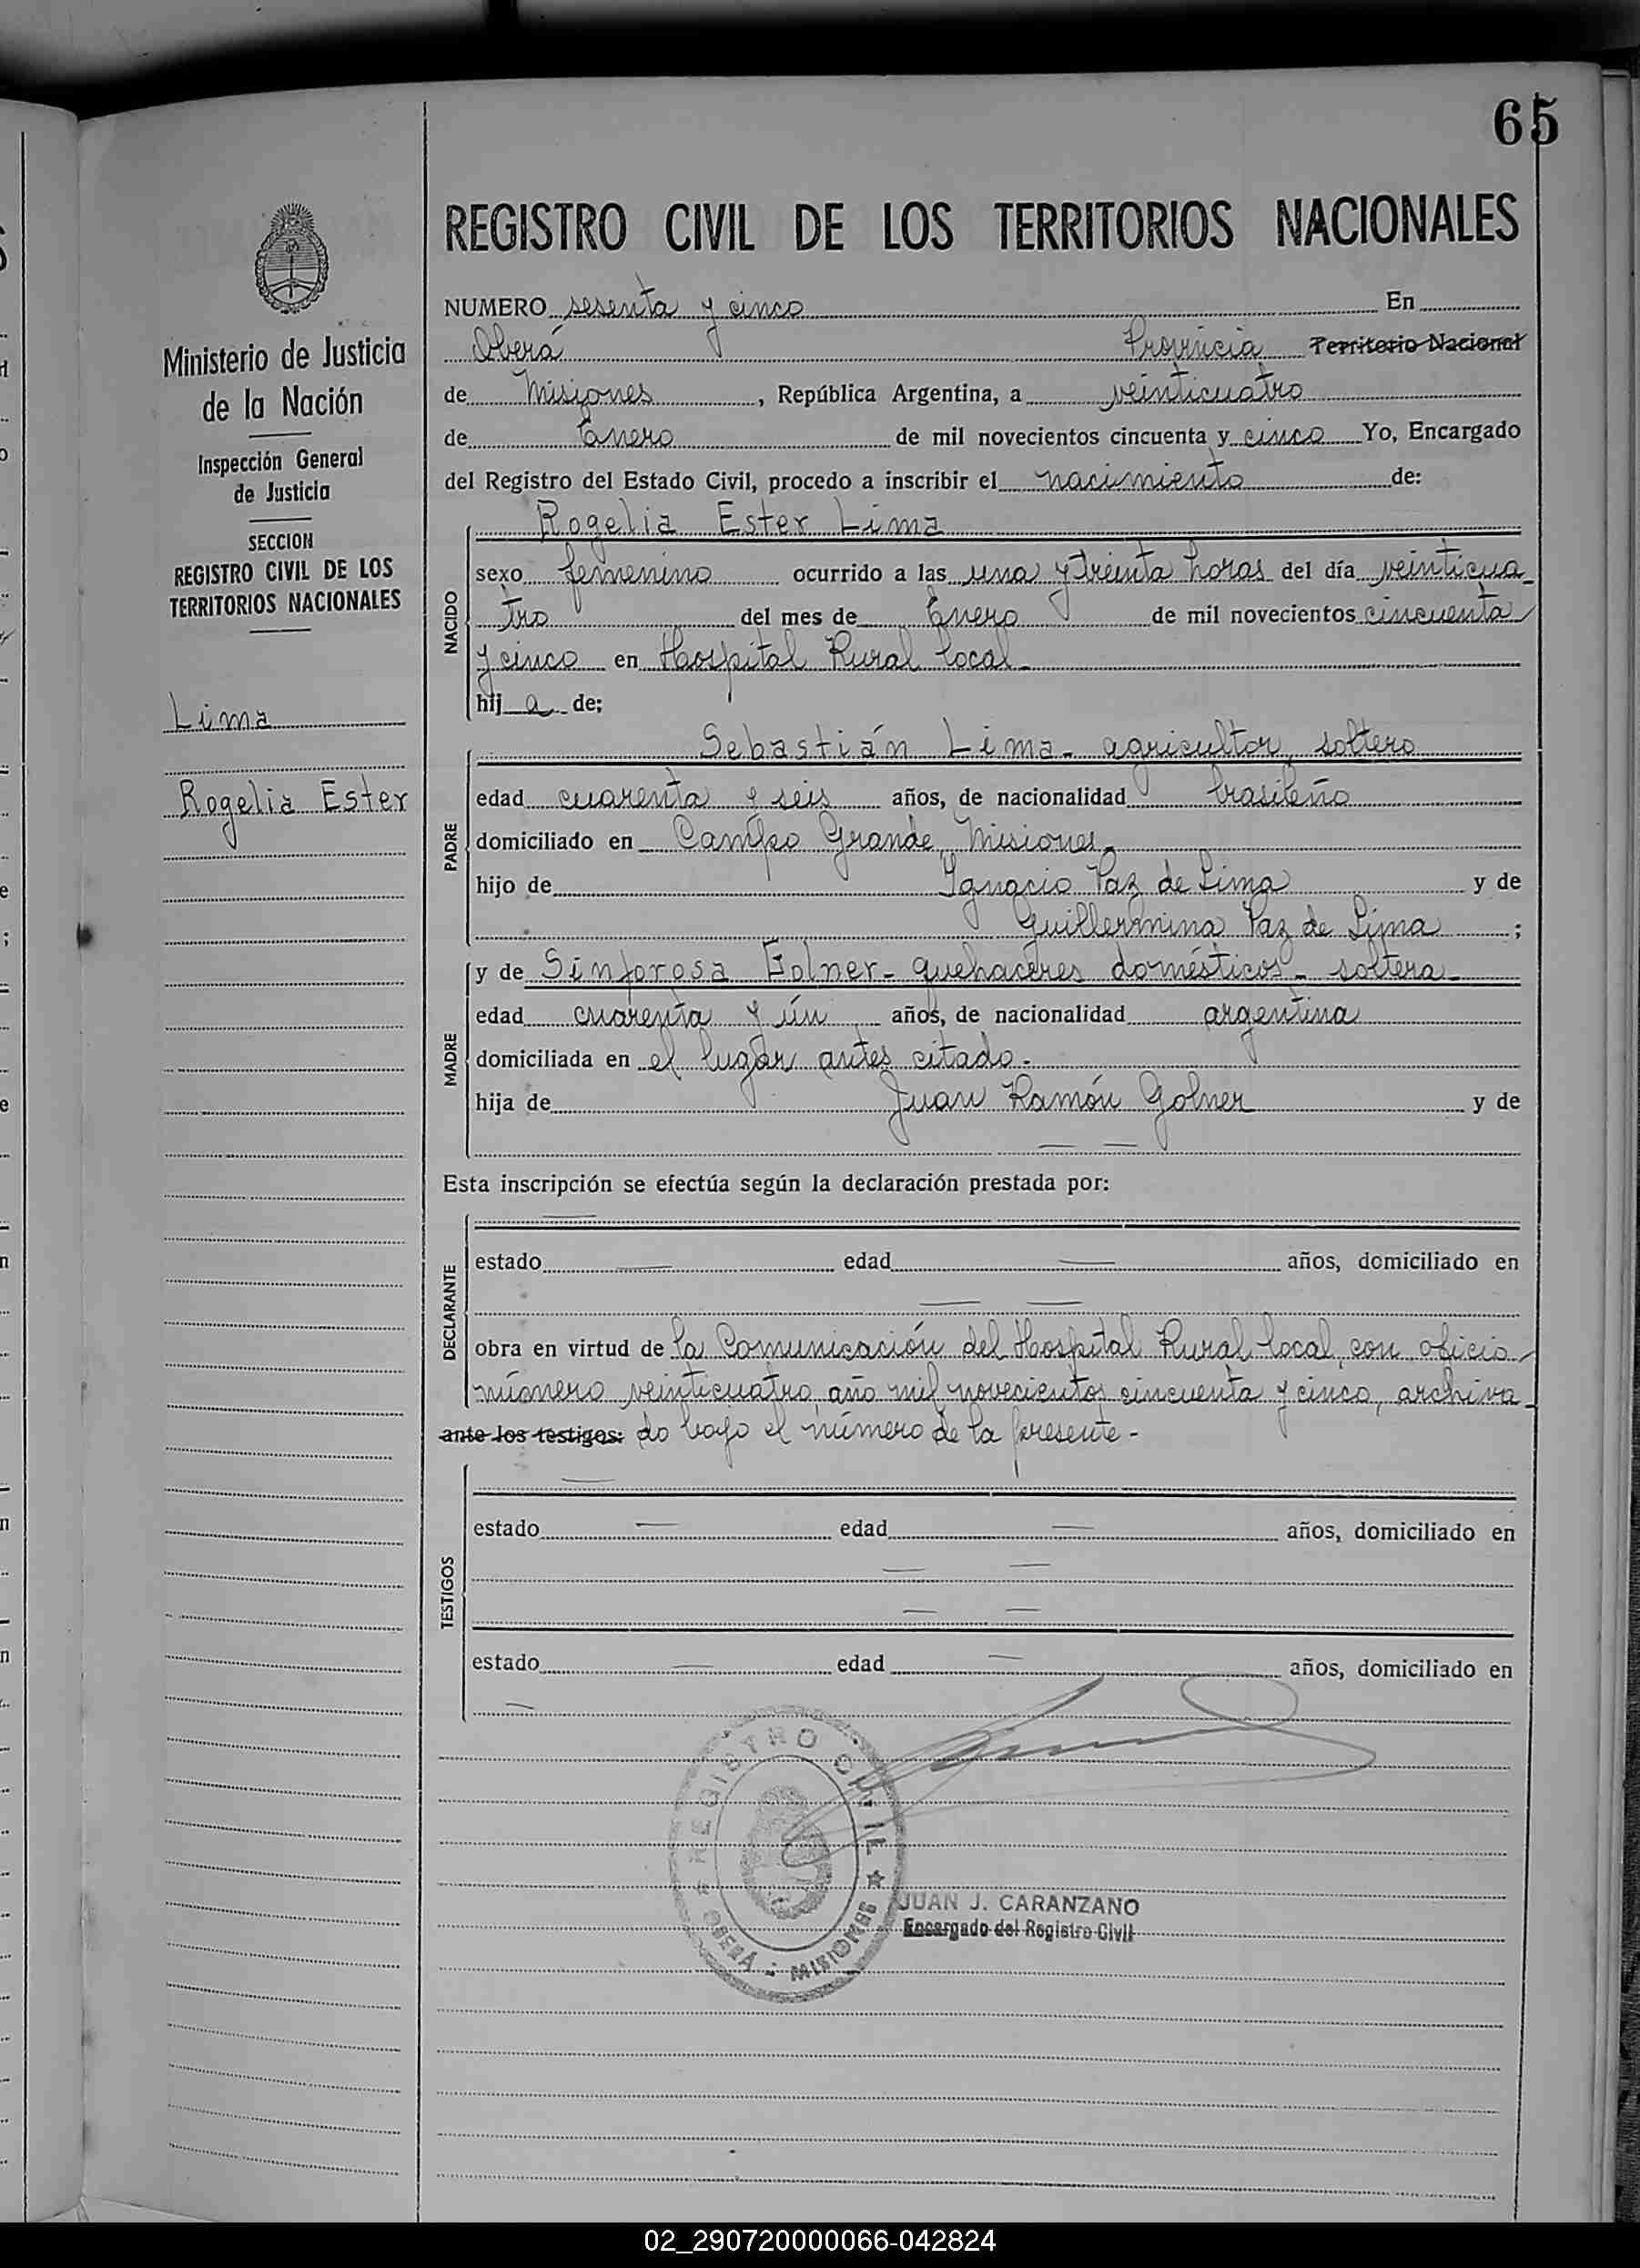 65
Ministerio de Justicia
de la Nación
Inspección General
de Justicia
SECCION
REGISTRO CIVIL DE LOS
TERRITORIOS NACIONALES
Lima
Rogelia Ester
REGISTRO CIVIL DE LOS TERRITORIOS NACIONALES
NUMERO sesenta y cinco En
Oberá Provincia Territorio Nacional
de Misiones, República Argentina, a veinticuatro
de Enero de mil novecientos cincuenta y cinco Yo, Encargado
del Registro del Estado Civil, procedo a inscribir el nacimiento de:
NACIDO
Rogelia Ester Lima
sexo femenino ocurrido a las una y treinta horas del día veinticua-
tro del mes de Enero de mil novecientos cincuenta
y cinco en Hospital Rural local-
hij a de;
PADRE
Sebastián Lima- agricultor, soltero
edad cuarenta y seis años, de nacionalidad brasileño
domiciliado en Campo Grande, Misiones-
hijo de Ignacio Paz de Lima y de
Guillermina Paz de Lima ;
MADRE
y de Sinforosa Golner- quehaceres domésticos- soltera-
edad cuarenta y ún años, de nacionalidad argentina
domiciliada en el lugar antes citado-
hija de Juan Ramón Golner y de
Esta inscripción se efectúa según la declaración prestada por:
DECLARANTE
estado edad años, domiciliado en
obra en virtud de la Comunicación del Hospital Rural local, con oficio
número veinticuatro, año mil novecientos cincuenta y cinco, archiva-
ante los testigos: do bajo el número de la presente-
TESTIGOS
estado edad años, domiciliado en
estado edad años, domiciliado en
REGISTRO CIVIL
OBERÁ - MISIONES
JUAN J. CARANZANO
Encargado del Registro Civil
02_290720000066-042824